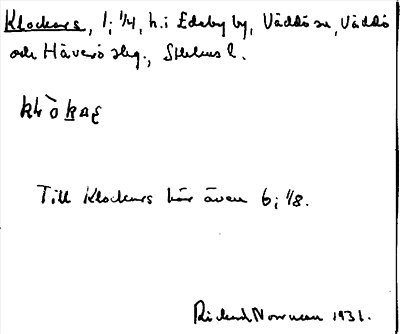 Klockars, 1; 1/4, h. i Edeby by, Väddö sn, Väddö
och Häverö skg., Sthlms l.
klò̀kaṣ
Till Klockars hör även 6; 1/8.
Rickard Norrman 1931.